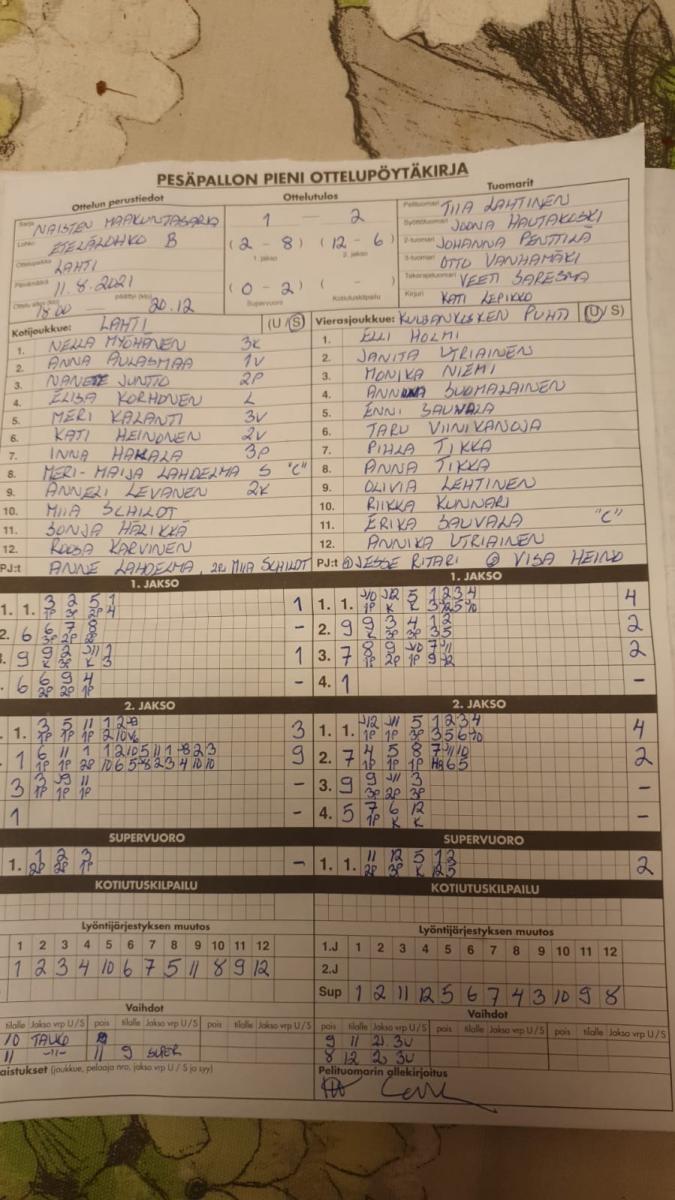 PESÄPALLON PIENI OTTELUPÖYTÄKIRJA
Ottelun perustiedot Ottelutulos Tuomarit
Sarja NAISTEN MAAKUNTASARJA
Lohko ETELÄLOHKO B
Ottelupaikka LAHTI
Päivämäärä 11.8.2021
Ottelu alkoi (klo) 18.00 päättyi (klo) 20.12
1 — 2
(2 – 8) (12 – 6)
1. jakso 2. jakso
(0 – 2) ( – )
Supervuoro Kotiutuskilpailu
Pelituomari TIIA LAHTINEN
Syöttötuomari JOONA HAUTAKOSKI
2-tuomari JOHANNA PENTTILÄ
3-tuomari OTTO VANHAMÄKI
Takarajatuomari VEETI SARESMA
Kirjuri KATI LEPIKKO
Kotijoukkue: LAHTI (U/S)
1. NELLA MYÖHÄNEN 3K
2. ANNA AULASMAA 1V
3. JUNTTO 2P
4. ELISA KORHONEN L
5. MERI KALANTI 3V
6. KATI HEINONEN 2V
7. INNA HAKALA 3P
8. MERI-MAIJA LAHDELMA S "C"
9. ANNELI LEVANEN 2K
10. MIIA SCHILDT
11. SONJA HÄLIKKÄ
12. ROOSA KARVINEN
PJ:t ANNE LAHDELMA, MIIA SCHILDT
Vierasjoukkue: PUHTI (U/S)
1. ELLI HOLMI
2. JANITA UTRIAINEN
3. MONIKA NIEMI
4. SUOMALAINEN
5. ENNI SAUVALA
6. TARU VIINIKANOJA
7. PIHLA TIKKA
8. ANNA TIKKA
9. OLIVIA LEHTINEN
10. RIIKKA KUNNARI
11. ERIKA SAUVALA "C"
12. ANNIKA UTRIAINEN
PJ:t JESSE RITARI VISA HEINO
1. JAKSO
1. 1. 3 2 5 1 1
1P 3P 2P 4
2. 6 6 7 8 –
3P 2P
9 9 2 1
K 3P K 3
6 6 9 4 –
2P 2P 1P
1. JAKSO
1. 1. 5 1 2 3 4 4
2. 9 9 3 4 1 2 2
K 3P 3P 3 5
3. 7 8 9 2
1P 2P 1P 9
4. 1 –
2. JAKSO
1. 3 5 11 1 2 3
1P 1P 1P
1 6 11 1 1 2 10 5 11 1 8 2 3 9
1P 1P 2P 10 6 5 8 2 3 4 10 10
3 3 11 –
1P 1P 1P
1 –
2. JAKSO
1. 1. 5 1 2 3 4 4
1P 1P 3P 3 5 6
2. 7 4 5 8 7 2
1P 1P 1P 6 5
3. 9 9 3 –
3P 2P 3P
4. 5 7 6 12 –
1P K K
SUPERVUORO
1. 1 2 3 –
2P 2P 1P
SUPERVUORO
1. 1. 11 12 5 1 2 2
2P 3P K
KOTIUTUSKILPAILU
KOTIUTUSKILPAILU
Lyöntijärjestyksen muutos
1 2 3 4 5 6 7 8 9 10 11 12
1 2 3 4 10 6 7 5 11 8 9 12
Lyöntijärjestyksen muutos
1.J 1 2 3 4 5 6 7 8 9 10 11 12
2.J
Sup 1 2 11 12 5 6 7 4 3 10 9 8
Vaihdot
tilalle Jakso vrp U/S pois tilalle Jakso vrp U/S pois tilalle Jakso vrp U/S
10 TAUKO
11 –"– 11 9 SUPER
Vaihdot
pois tilalle Jakso vrp U/S pois tilalle Jakso vrp U/S
9 11 2J 3V
8 12 2J 3V
(joukkue, pelaaja nro, jakso vrp U / S ja syy)
Pelituomarin allekirjoitus